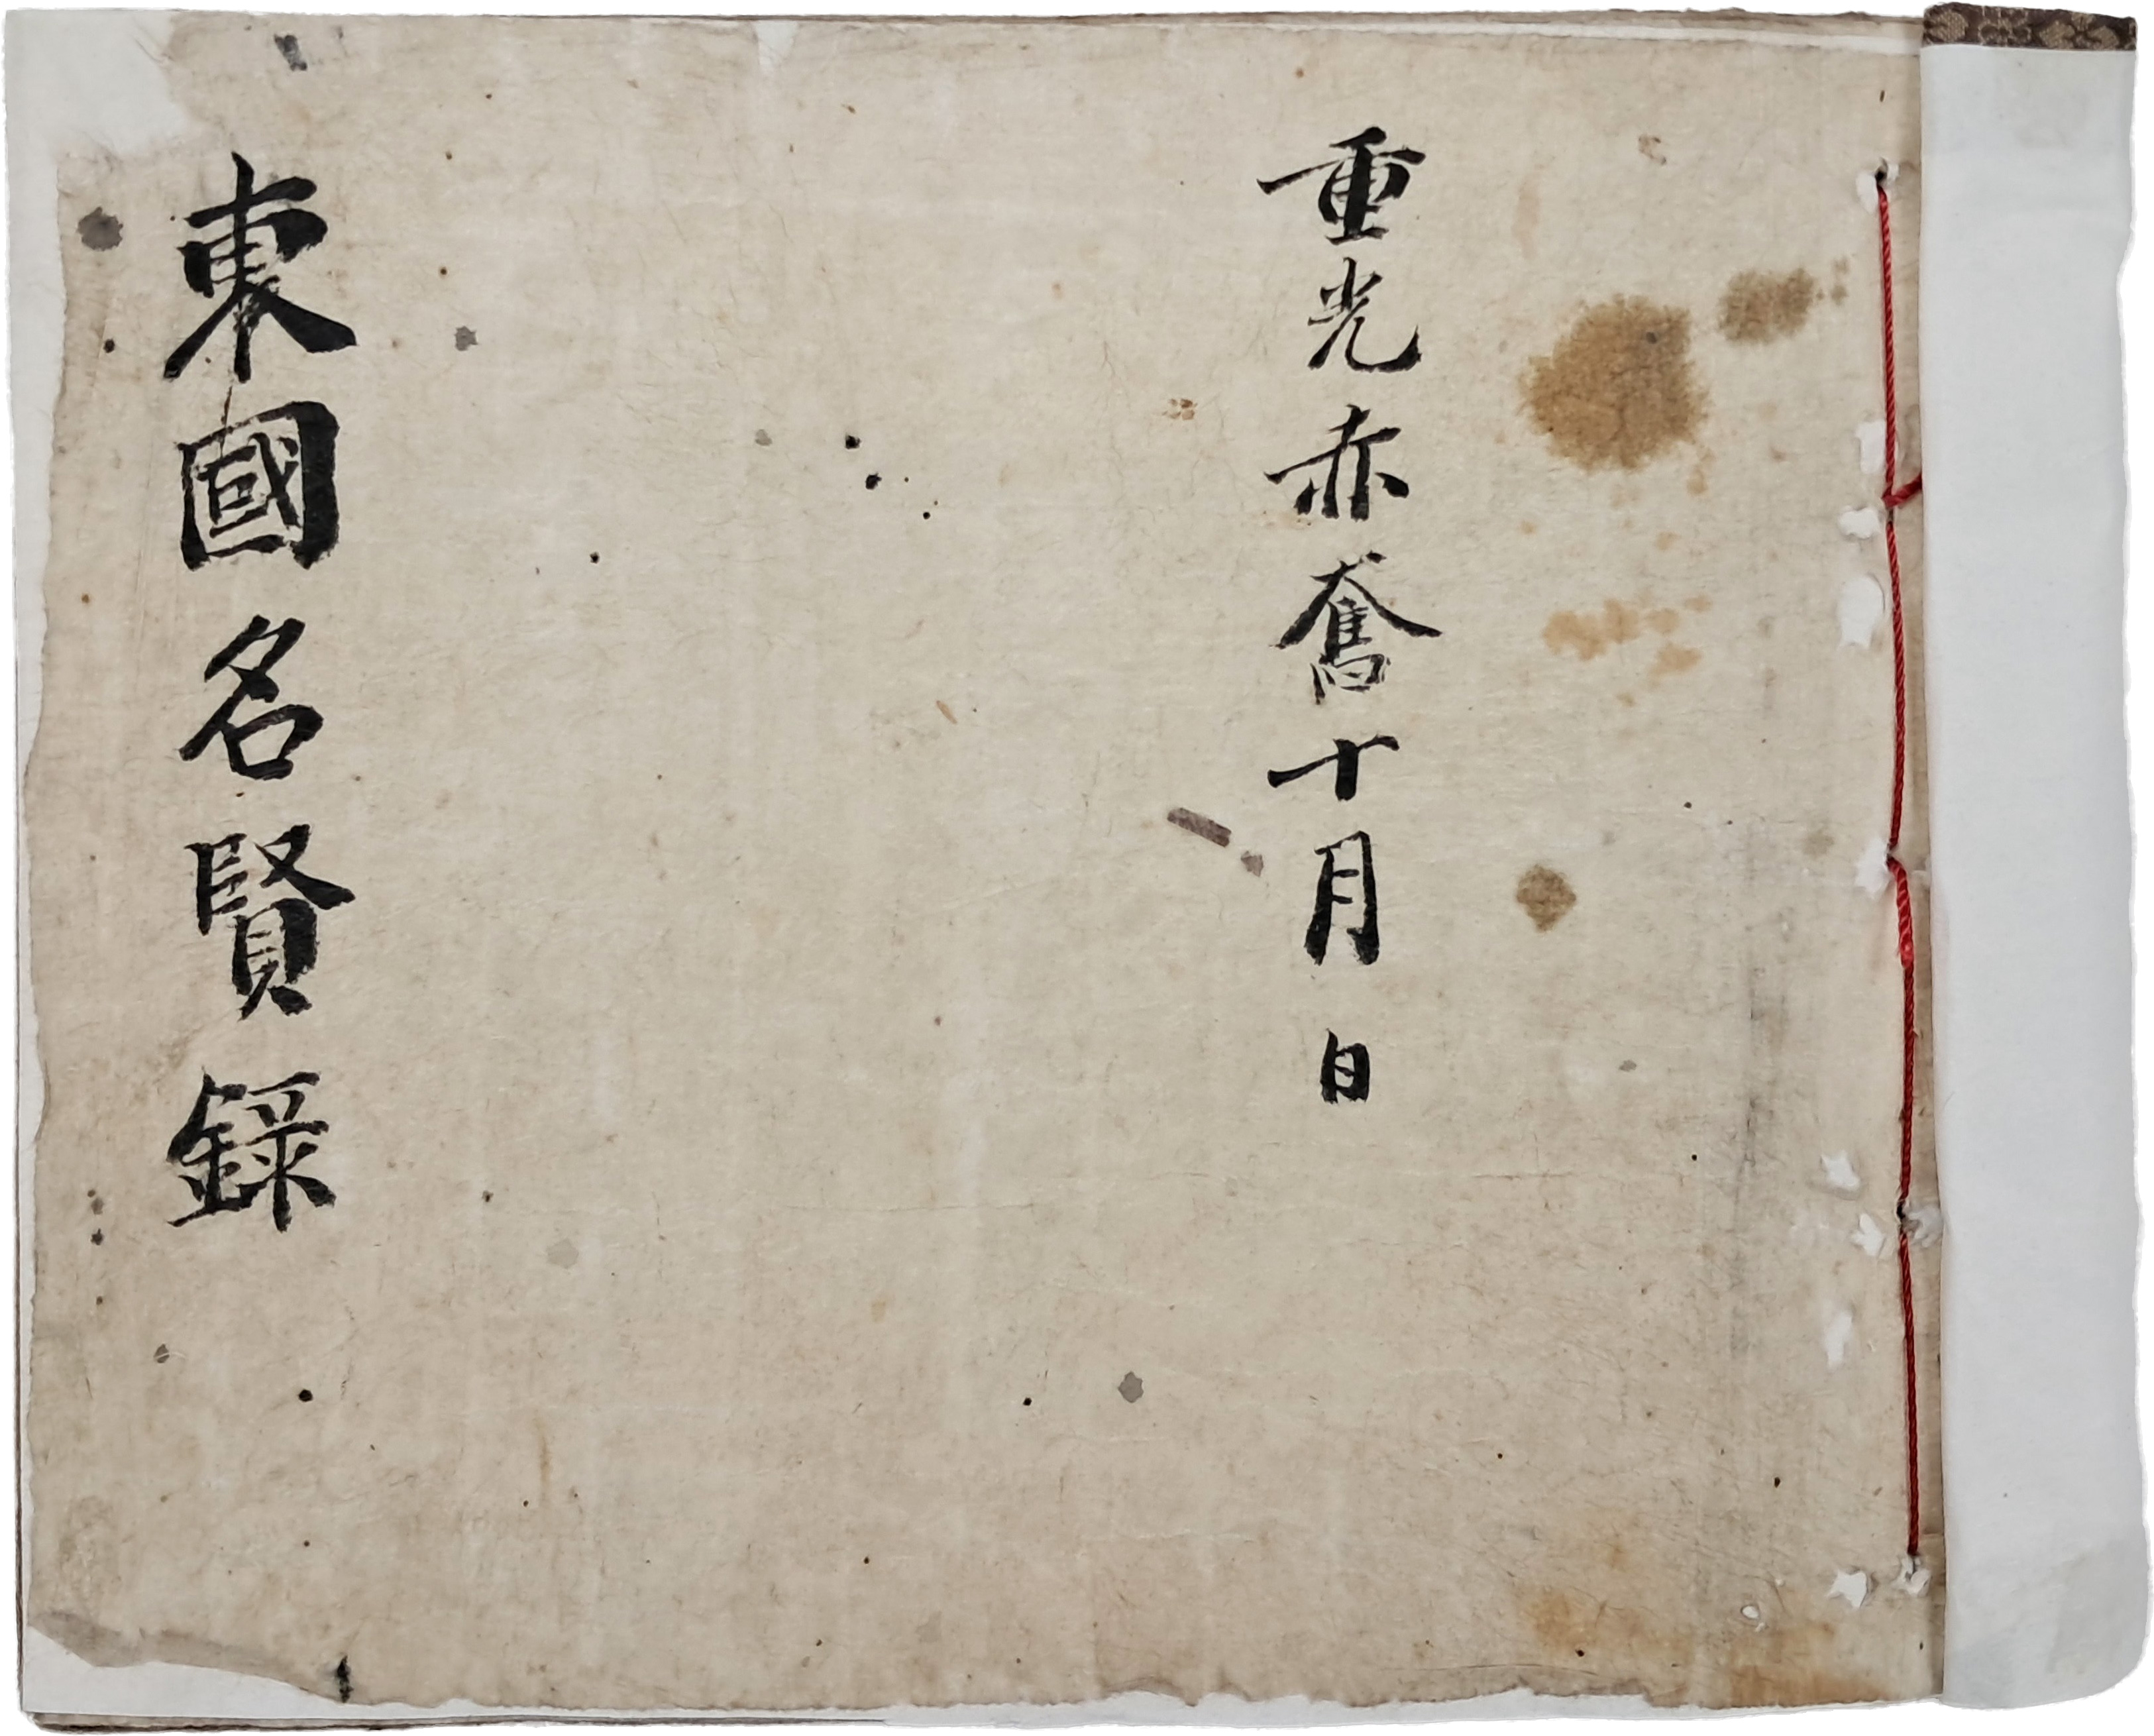 重光赤奮十月 日
東國名賢錄